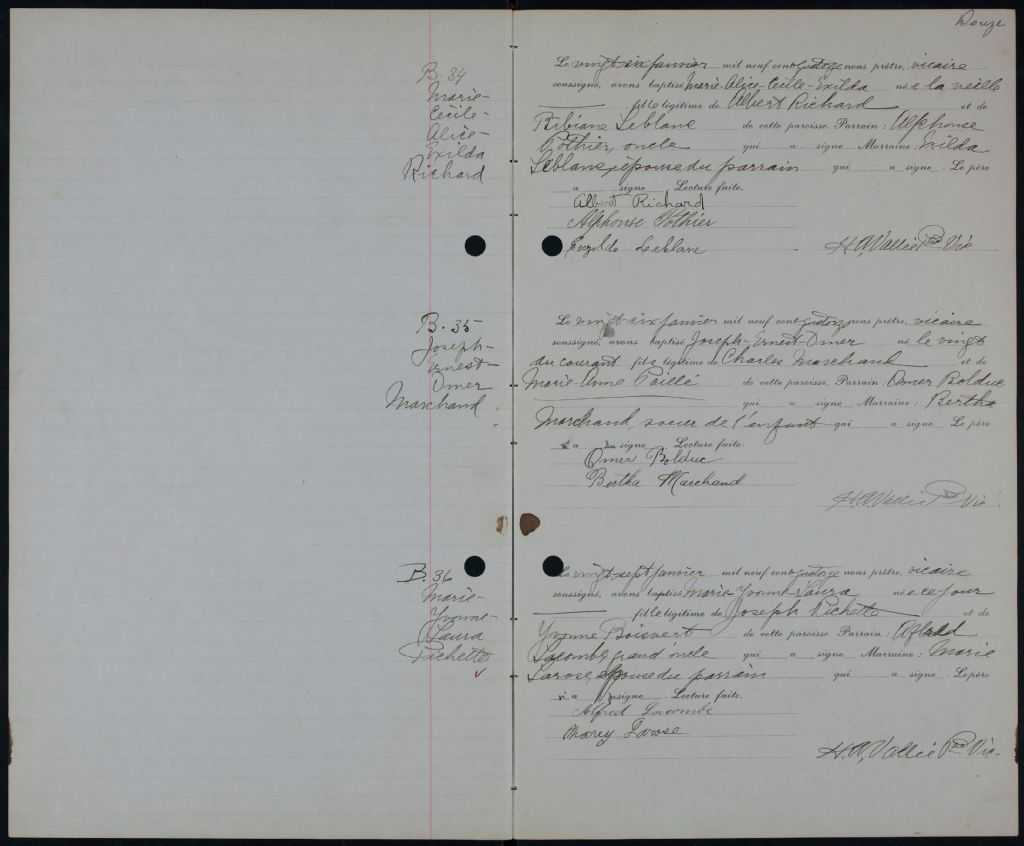 Douze
B. 34
Marie-
Cecile-
Alice-
Exilda
Richard
Le vingt-six janvier mil neuf cent quatorze nous prêtre, vicaire
soussigné, avons baptisé Marie-Alice-Cecile-Exilda née la veille
fille légitime de Albert Richard et de
Bibiane Leblanc de cette paroisse. Parrain : Alphonse
Pothier, oncle qui a signé. Marraine : Exilda
Leblanc, épouse du parrain qui a signé. Le père
a signé. Lecture faite.
Albert Richard
Alphonse Pothier
Exzilda Leblanc H. A. Vallée Ptre Vic
B. 35
Joseph-
Ernest-
Omer
Marchand
Le vingt-six janvier mil neuf cent quatorze nous prêtre, vicaire
soussigné, avons baptisé Joseph-Ernest-Omer né le vingt
du courant fils légitime de Charles Marchand et de
Marie-Anne Paillé de cette paroisse. Parrain : Omer Bolduc
qui a signé. Marraine : Bertha
Marchand, soeur de l'enfant qui a signé. Le père
n'a pu signé. Lecture faite.
Omer Bolduc
Bertha Marchand
H. A. Vallée Ptre Vic.
B. 36
Marie-
Yvonne-
Laura
Pichette
Le vingt-sept janvier mil neuf cent quatorze nous prêtre, vicaire
soussigné, avons baptisé Marie-Yvonne-Laura née ce jour
fille légitime de Joseph Pichette et de
Yvonne Boisvert de cette paroisse. Parrain : Alfred
Lacombe, grand oncle qui a signé. Marraine : Marie
Larose, épouse du parrain qui a signé. Le père
n'a pu signé. Lecture faite.
Alfred Lacombe
Marey Larose
H. A. Vallée Ptre Vic.